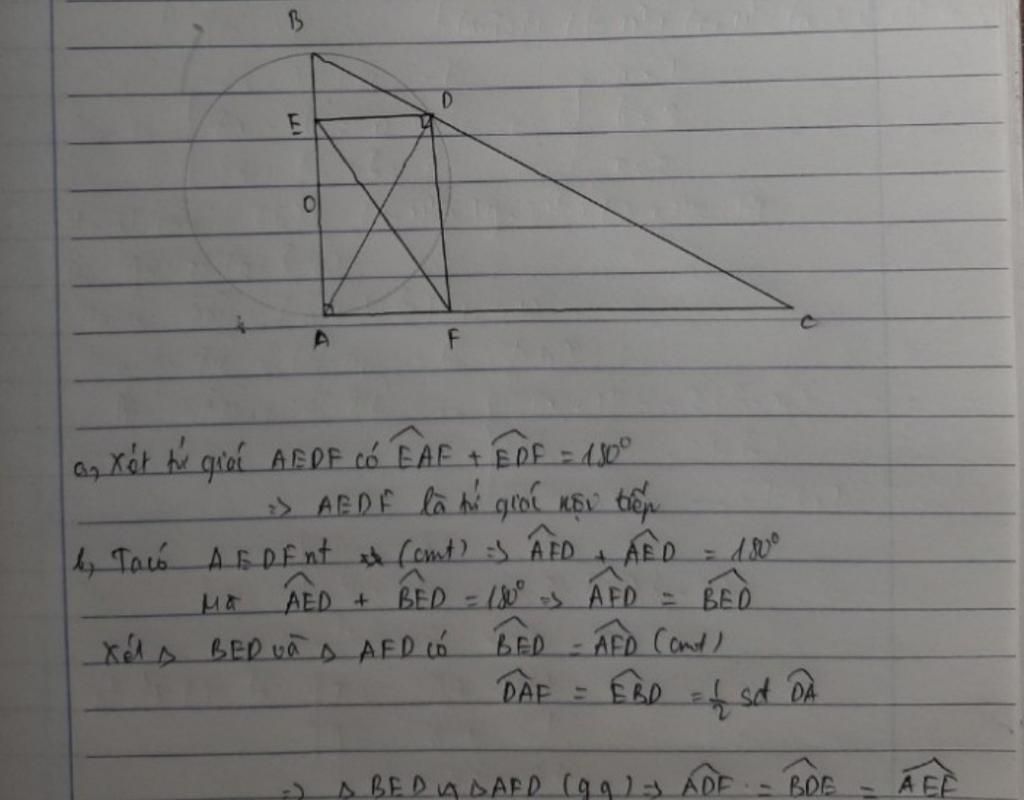 B
D
E
O
A F C
a, Xét tứ giác AEDF có EAF + EDF = 180°
=> AEDF là tứ giác nội tiếp
b, Ta có AEDF nt (cmt) => AFD + AED = 180°
Mà AED + BED = 180° => AFD = BED
Xét Δ BED và Δ AFD có BED = AFD (cmt)
DAF = EBD = 1/2 sđ DA
=> Δ BED ∽ Δ AFD (gg) => ADF = BDE = AEF